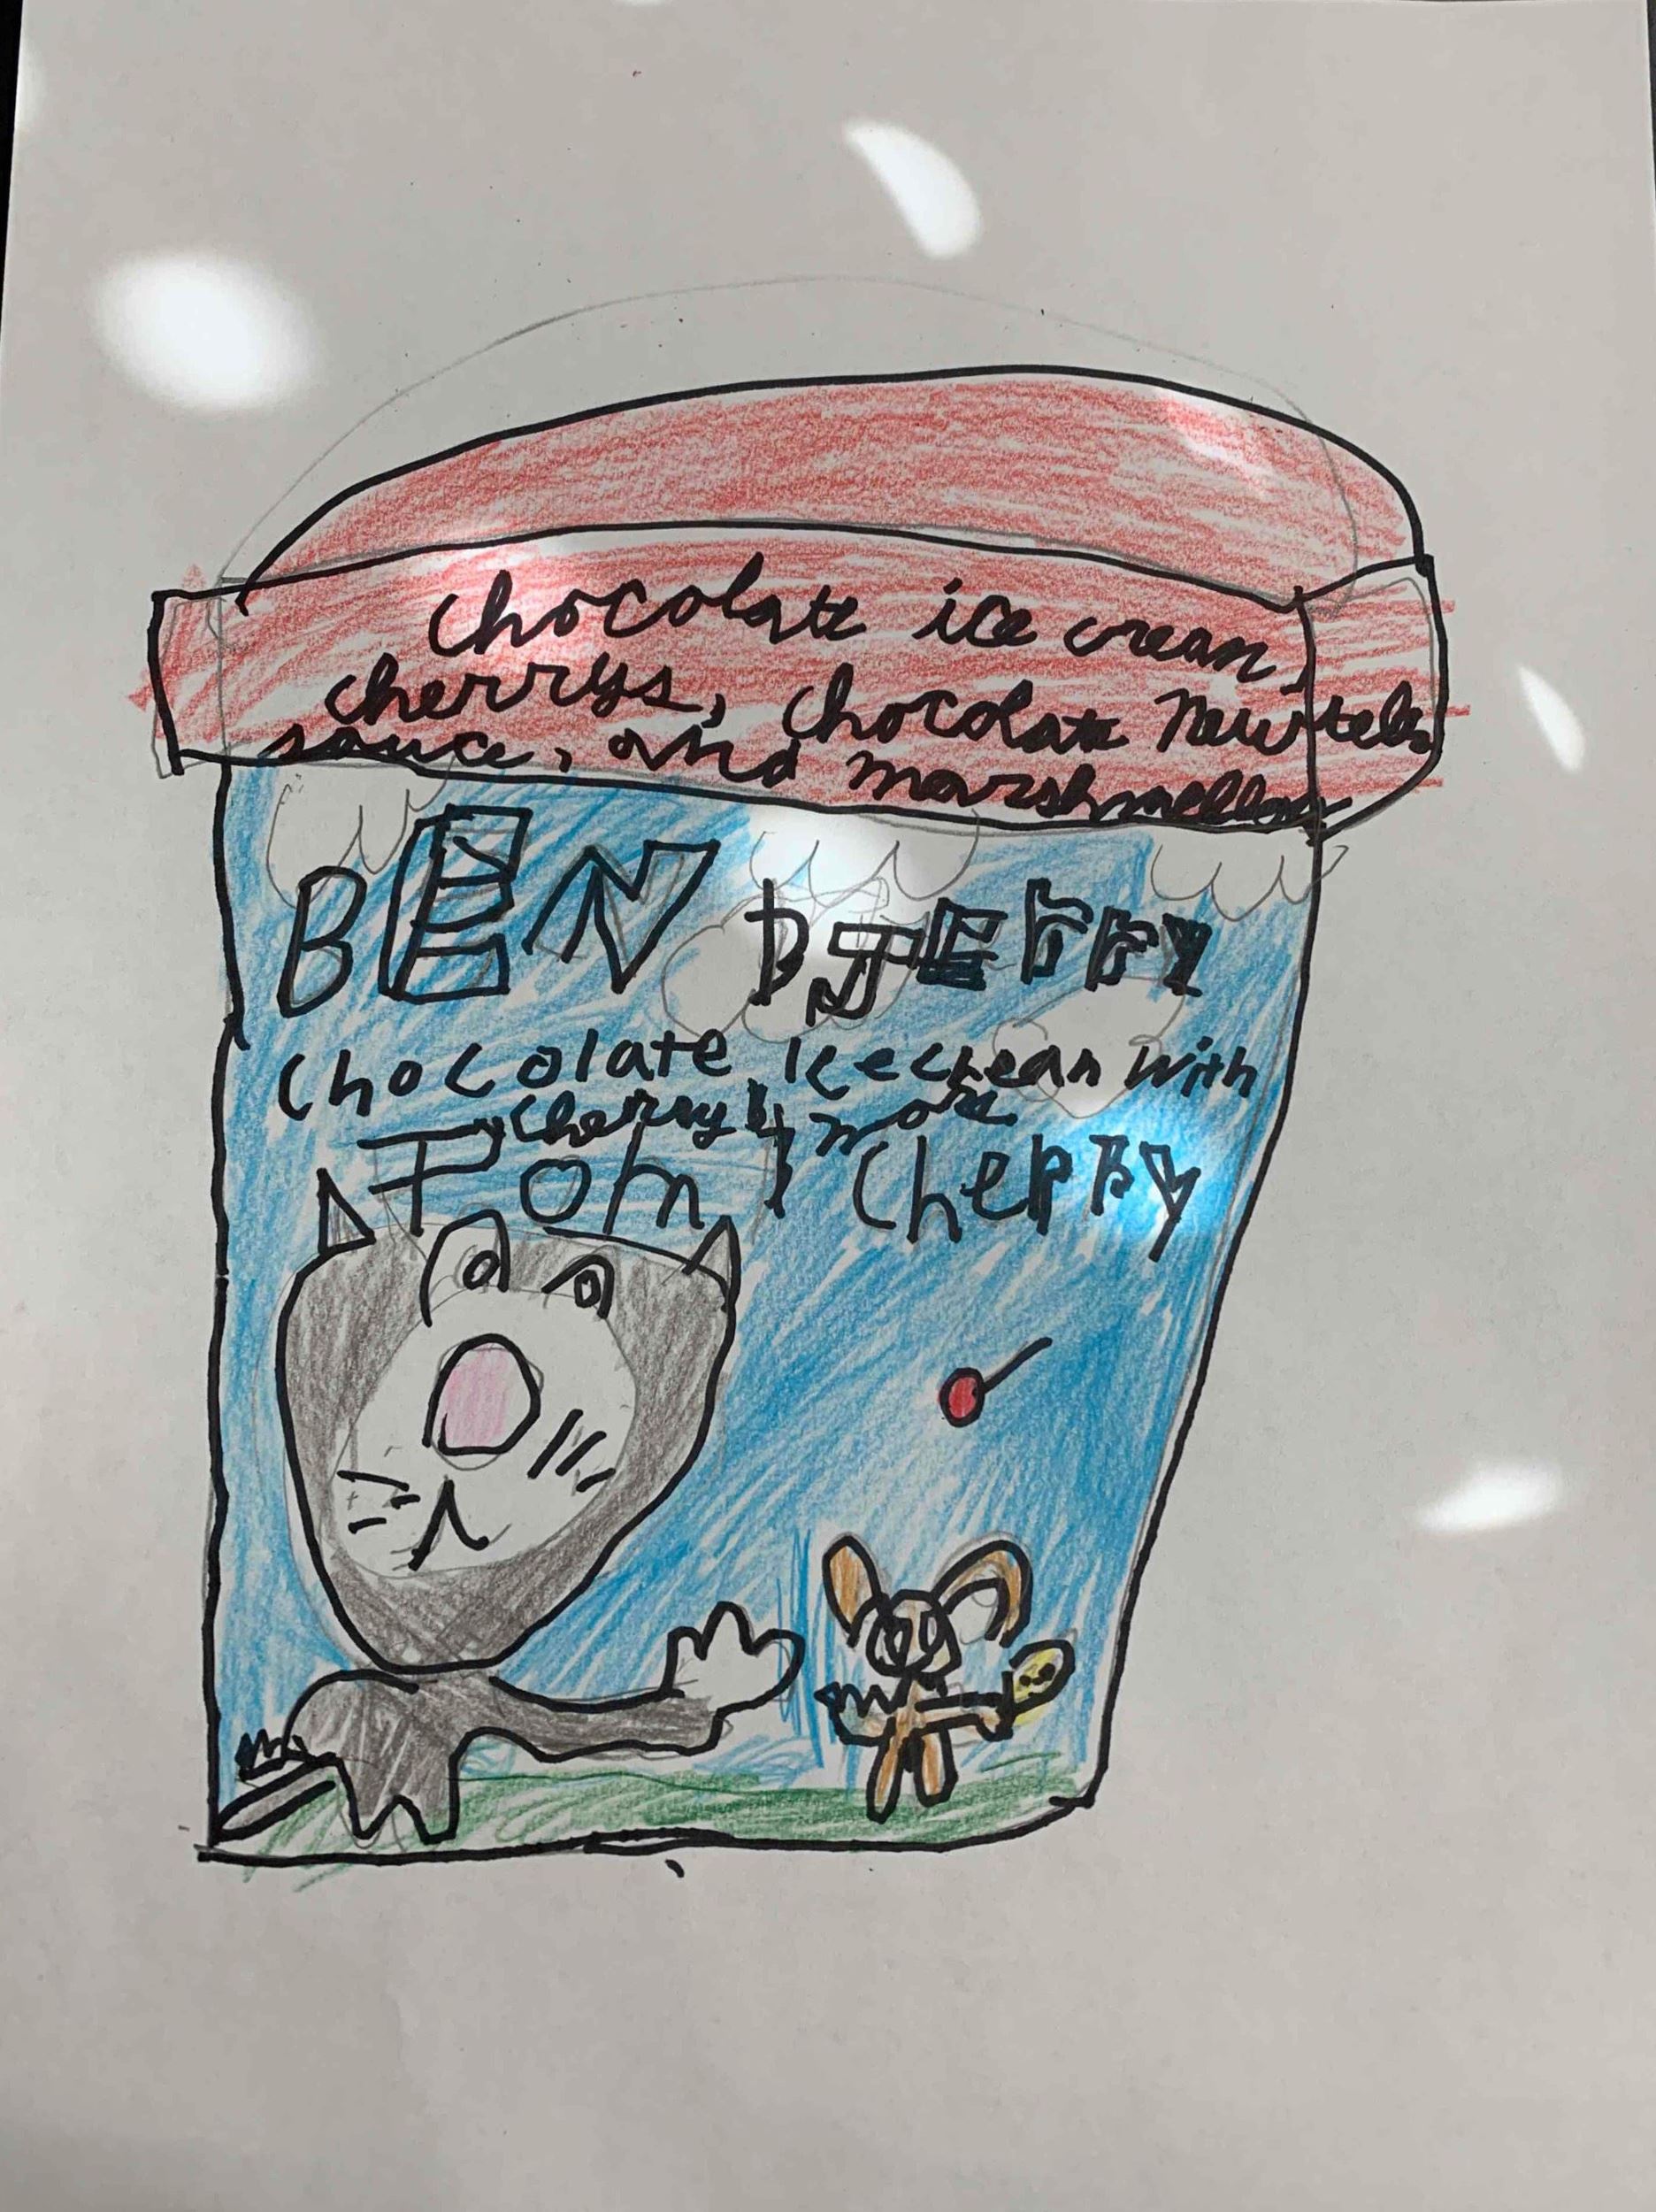 chocolate ice cream,
cherrys, chocolate Newtela
sauce, and marshmellow
BEN & JERRY
Chocolate icecream with
cherry & more
Tom & Cherry